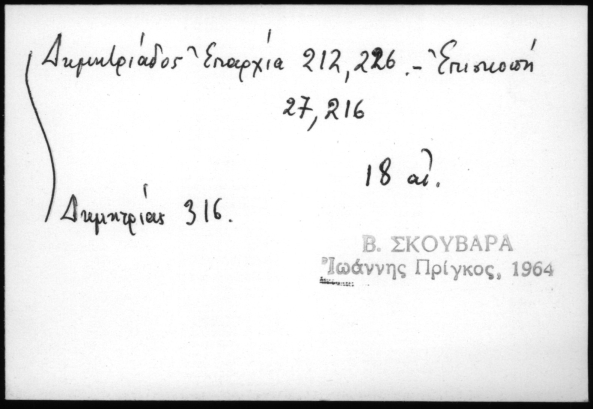 Δημητριάδος Ἐπαρχία 212, 226. - Ἐπισκοπή
27, 216
18 αἰ.
Δημητριάς 316.
Β. ΣΚΟΥΒΑΡΑ
Ἰωάννης Πρίγκος, 1964